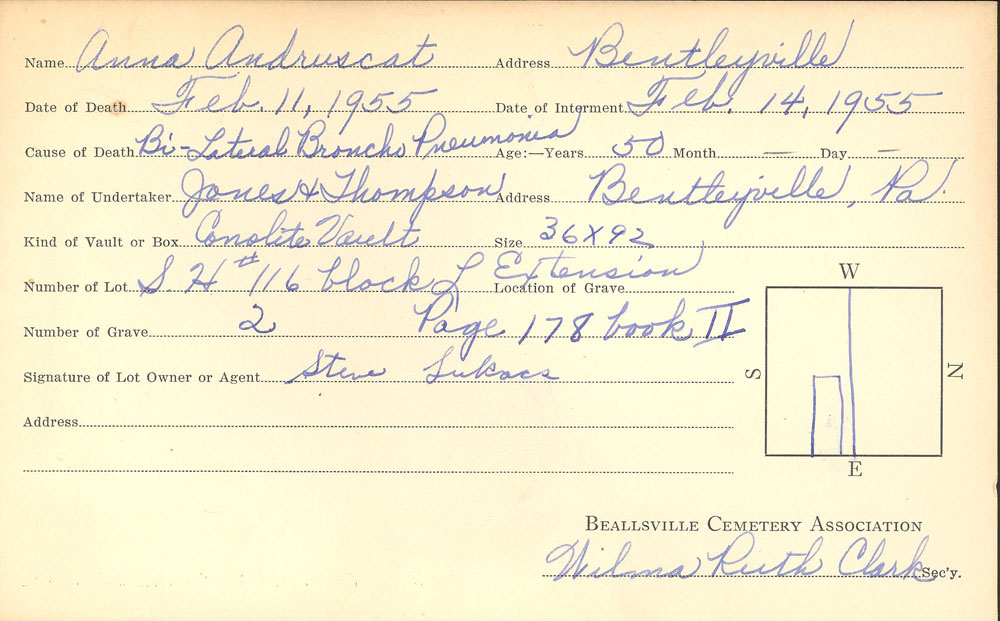 Name Anna Andruscat Address Bentleyville
Date of Death Feb. 11, 1955 Date of Interment Feb. 14, 1955
Cause of Death Bi-Lateral Broncho Pneumonia Age:—Years 50 Month — Day —
Name of Undertaker Jones & Thompson Address Bentleyville, Pa.
Kind of Vault or Box Conolite Vault Size 36X92
Number of Lot S. H #116 block L Extension Location of Grave
Number of Grave 2 Page 178 book II
Signature of Lot Owner or Agent Steve Lukacs
Address
W
S
N
E
BEALLSVILLE CEMETERY ASSOCIATION
Wilma Ruth Clark Sec'y.